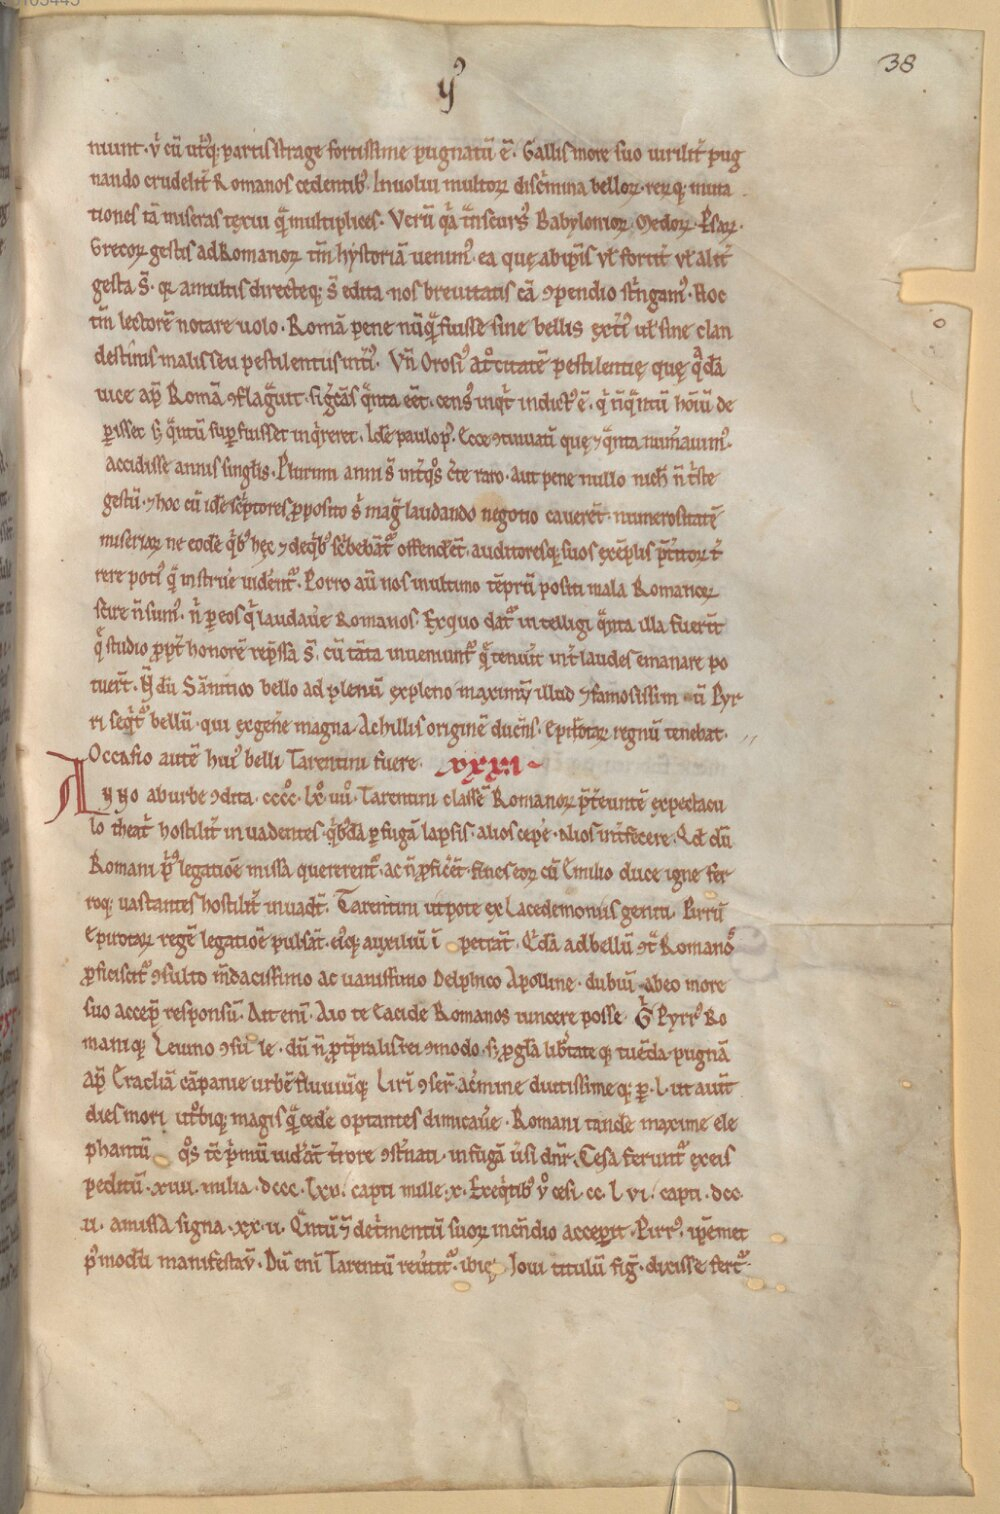 38
niunt · v̓ cū utq; partis strage fortissime pugnatū ē · Gallis more suo virilit̓ pug
nando crudelit̓ Romanos cedentib; Inuolui multoꝝ discⁱmina belloꝝ · reꝝq; muta
tiones tā miseras texui q̄ multiplices · Verū qⁱa tⁿscursꝰ Babylonioꝝ · Medoꝝ · Psaꝝ ·
Grecoꝝ gestis ad Romanoꝝ tm̄ hystoriā uenimꝰ · ea quę ab ip̄is ul̓ fortit̓ ul̓ alit̓
gesta s̄ · qꝛ a multis directeq; s̄ edita · nos breuitatis cā ꝯpendio stⁱngamꝰ · Hoc
tm̄ lectorē notare uolo · Romā pene nūq̄ fuisse sine bellis ext̓iꝰ ul̓ sine clan
destinis malis seu pestilentiis int̓iꝰ · Vn̄ Orosiꝰ at͛citatē pestilentię quę qᵃdā
uice ap̄ Romā ꝯflagᵃuit · sigⁱcās qᵃnta eēt · censꝰ inqⁱt indictꝰ ē · qⁱ n̄ qᵃntū hoīū de
ꝑisset sꝫ qᵃntū suꝑfuisset inqⁱreret · Idē paulo pꝰ · Ecce ꝯtinuatī quę ⁊ qᵃnta numᵃuimꝰ ·
accidisse annis singlis · Plurimi anni s̄ int̓ qͦs c̓te raro · aut pene nullo nich̄ n̄ t̓ste
gestū · ⁊ hoc cū idē scⁱptores ꝓposito s̓ magⁱ laudando negotio cauerēt · numerositatē
miseriaꝝ ne eodē qⁱbꝰ hęc ⁊ de qⁱbꝰ sc̓bebāt᷑ offenderēt · auditoresq; suos exēplis pt̓itoꝝ t̓
rere potiꝰ q̄ instrue uident᷑ · Porro aū nos in ultimo tēpꝝ positi mala Romanoꝝ
scire n̄ sumꝰ · n̓ ꝑ eos qⁱ laudau̓e Romanos · Ex quo dat᷑ intelligi qᵃnta illa fuerīt
q̄ studio ꝓpt̓ honorē rep̄ssa s̄ · cū tāta inueniunt᷑ q̄ tenuit̓ int̓ laudes emanare po
tuerīt · Igⁱ dū Sānitico bello ad plenū expleno maximū illud ⁊ famosissim Pyr
ri seqⁱt᷑ bellū · qui ex gene magna Achillis originē ducēs · Epirotaꝝ regnū tenebat ·
Occasio autē huiꝰ belli Tarentini fuere · XXXI
Anno ab urbe ꝯdita · cccc · lx · iiii · Tarentini classē Romanoꝝ p̄t̓euntē expectacu
lo theat̓ hostilit̓ inuadentes · qⁱbꝰdā ꝑ fugā lapsis · alios cepe · alios int̓fecere · Qd̄ dū
Romani pⁱꝰ legatiōe missa quererent᷑ · ac n̄ ꝓficēt · fines eoꝝ cū Emilio duce igne fer
roq; uastantes hostilit̓ inuadt̄ · Tarentini utpote ex Lacedemoniis geniti · Pirrū
Epirotaꝝ regē legatiōe pulsāt · eiꝰq; auxiliū ī petrāt · Q̄dā ad bellū ꝯt̄ Romanoꝰ
ꝓficiscit᷑ ꝯsulto mdacissimo ac uanissimo Delphico Apolline · dubiū ab eo more
suo accep̄ responsū · Ait enī · Aio te Eacide Romanos uincere posse · Gⁱ Pyrrꝰ Ro
maniq; Leuino ꝯsu le · dū n̄ p̄tⁱp̄ralis rei ꝯmodo · sꝫ ꝓ gl̄a lib̓tate q; tuēda pugnā
ap̄ Eracliā cāpanie urbē fluuiūq; Lirī ꝯser̄ · ac̓mine diutissimeq; ꝑ · l · ut aiūt
dies mori utⁱbiq; magis q̄ cede optantes dimicau̓e · Romani tandē maxime ele
phantū qͦs tē pⁱmū uidāt t̓rore ꝯst̓nati · in fugā ūsi dn̄r · Cesa ferunt᷑ ex eis
peditū · xiiii · milia · dccc · lxv · capti mille · x · Ex eqⁱtib; v̓ cesi · cc · l vi · capti · dcc ·
ii · amissa signa · xx · ii · Qᵃntū ⁊ det̓mentū suoꝝ incēdio acceꝑit · Pirrꝰ · ip̄emet
pꝰmodū manifestav̄ · Dū enī Tarentū reūtit᷑ · ibię Ioui titulū fig̓ · dixisse fert᷑ ·